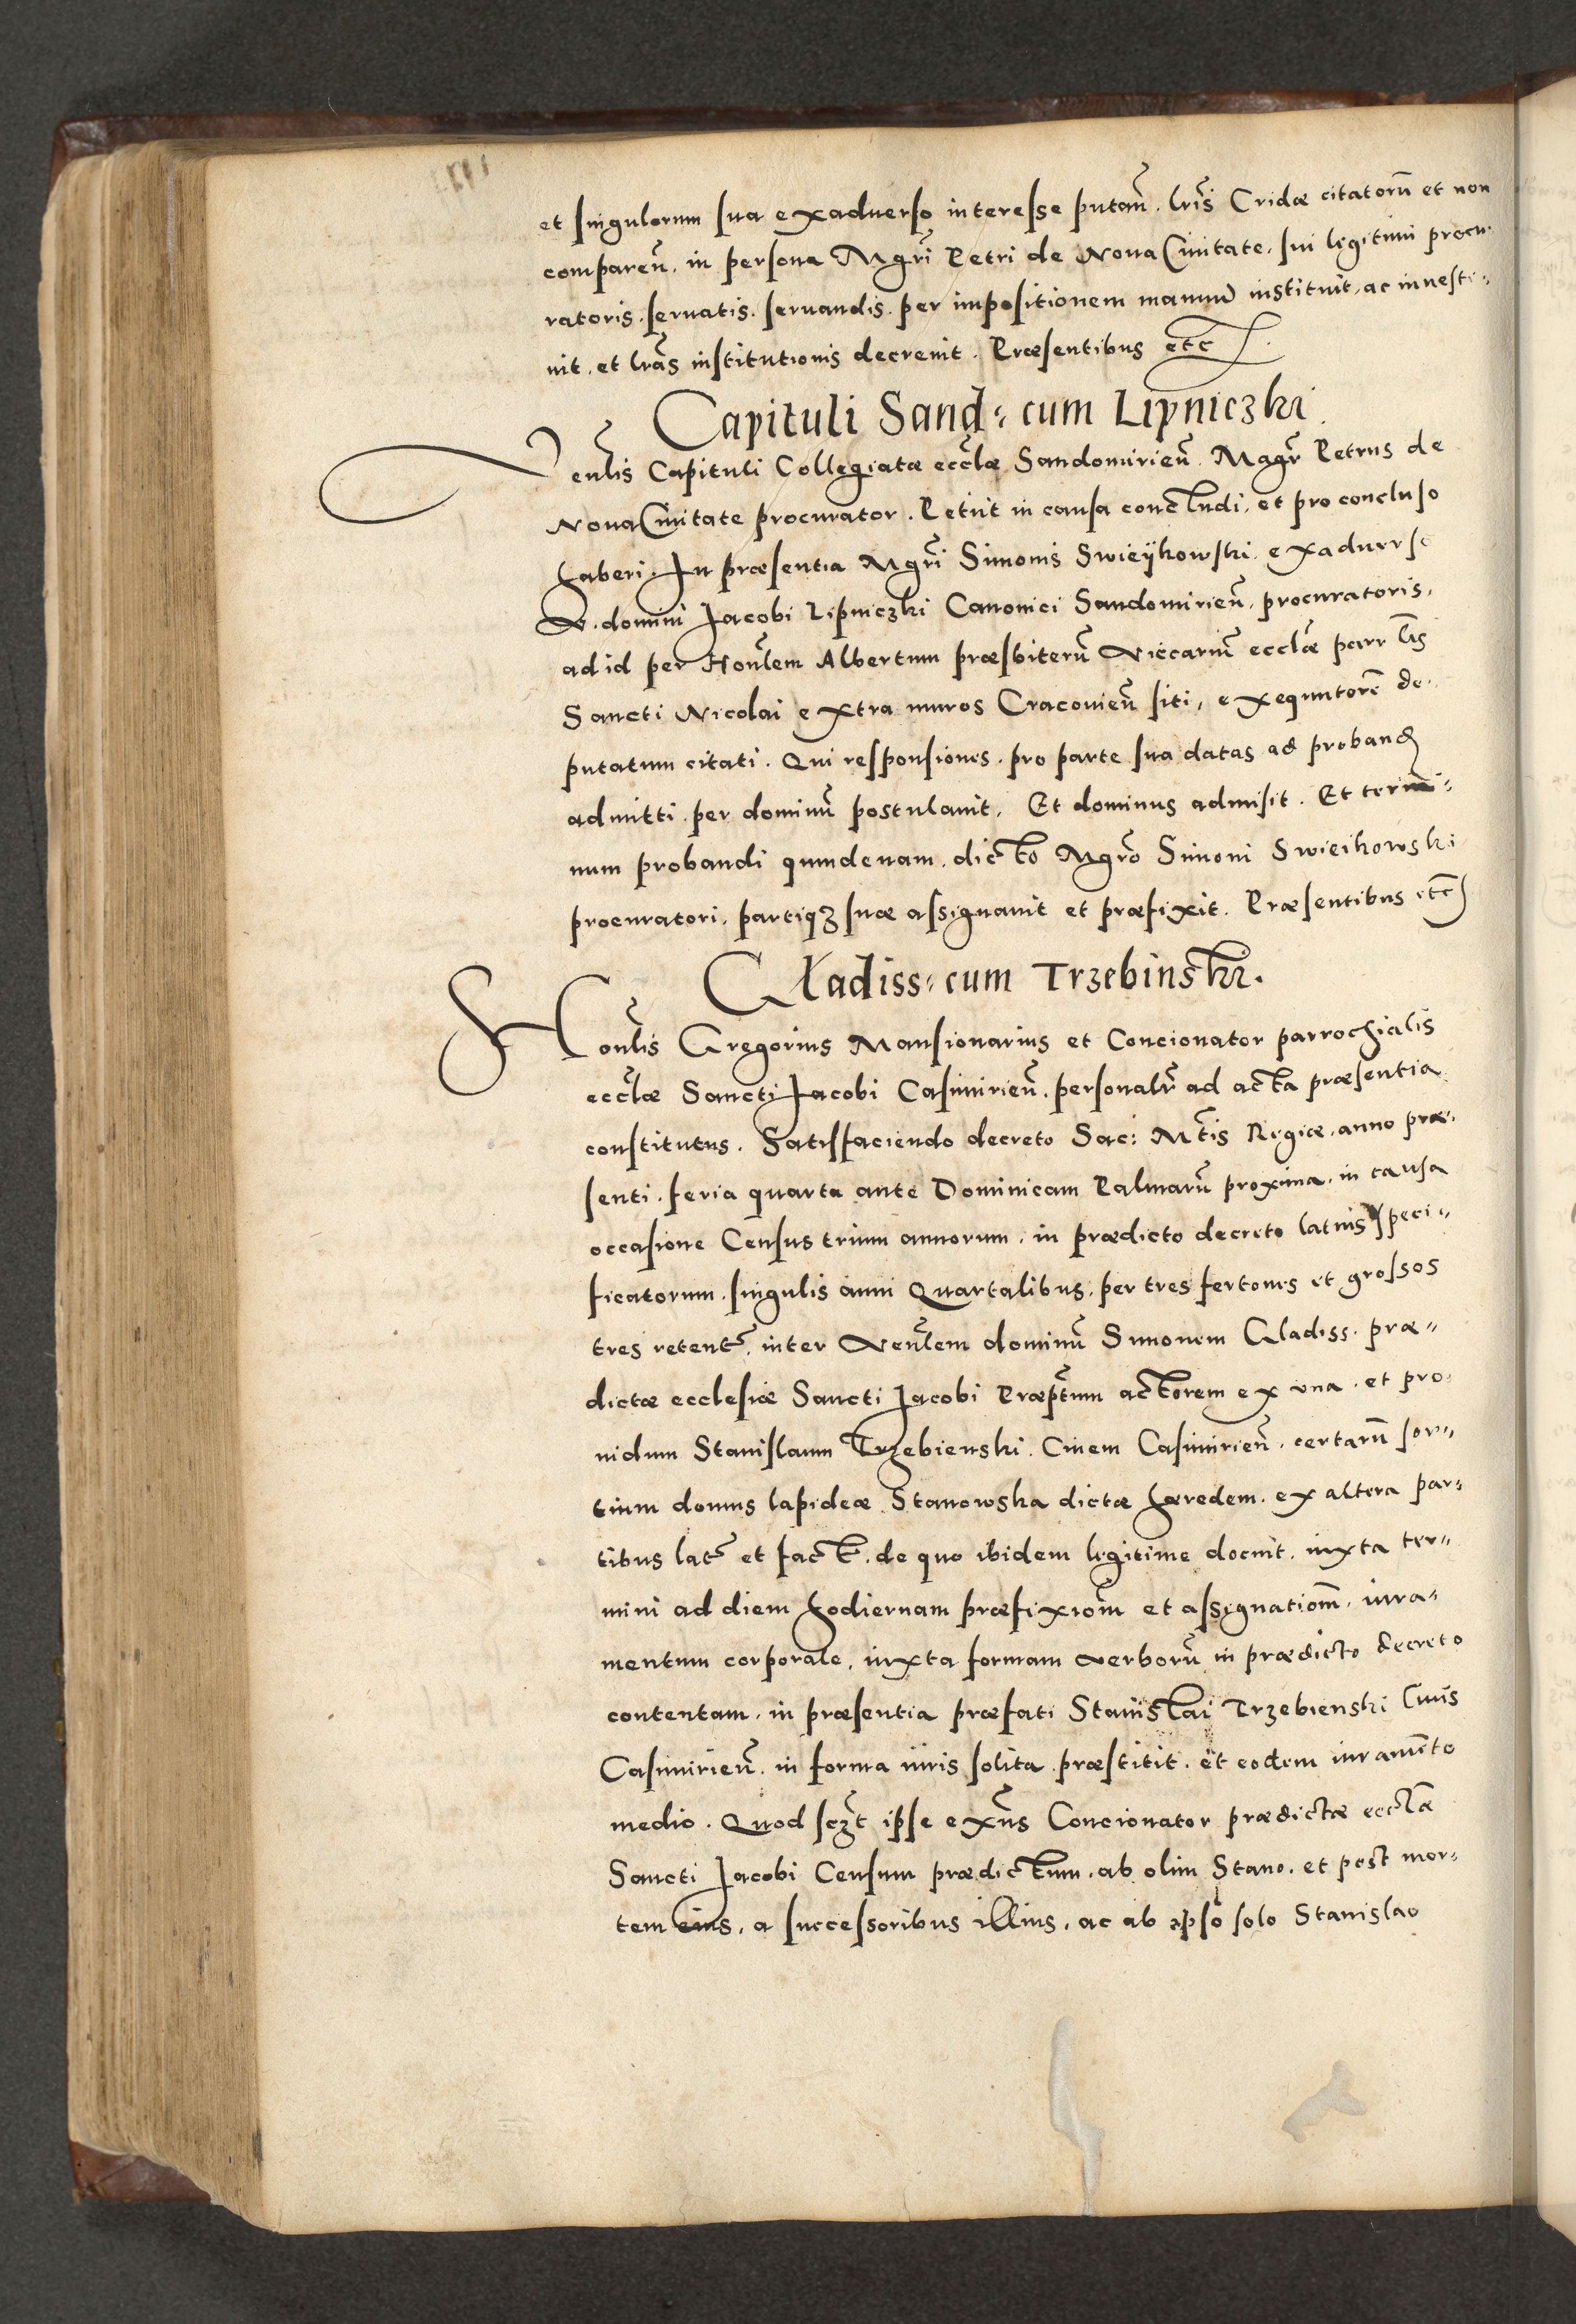 et singulorum sua exaduerso interesse putan̄. lrīs Cridæ citatorū et non
comparen̄. in persona Mgrī Petri de Noua Ciuitate, sui legitimi procu-
ratoris. seruatis. seruandis. per impositionem manuū instituit, ac inuesti-
uit. et lrās institutionis decreuit. Præsentibus etc.
Capituli Sand: cum Lipniczki.
Venlīs Capituli Collegiatæ ecclǣ Sandomirien̄. Magr̄ Petrus de
Noua Ciuitate procurator. Petiit in causa concludi, et pro concluso
haberi. In præsentia Mgrī Simonis Swieÿkowski exaduerso
V. domini Jacobi Lipniczki Canonici Sandomirien̄. procuratoris,
ad id per Honlēm Albertum præsbiterū Viccariū ecclǣ parrlīs
Sancti Nicolai extra muros Cracouien̄ siti, exequutorē de-
putatum citati. Qui responsiones. pro parte sua datas ad proband
admitti per dominū postulauit. Et dominus admisit. Et termi-
num probandi quindenam. dicto Mgrō Simoni Swieikowski
procuratori, partiqȝ suæ assignauit et præfixit. Præsentibus etc
Gładiss: cum Trzebinski.
Honlīs Gregorius Mansionarius et Concionator parrochialis
ecclǣ Sancti Jacobi Casimirien̄. personalr̄ ad acta præsentia
constitutus. Satisfaciendo decreto Sac: Mtīs Regiæ. anno præ-
senti. feria quarta ante Dominicam Palmarū proxima. in causa
occasione Census trium annorum. in prædicto decreto latius speci-
ficatorum. singulis anni Quartalibus. per tres fertones et grossos
tres retent̄. inter Venlēm dominū Simonem Gladiss. præ-
dictæ ecclesiæ Sancti Jacobi Præptum̄ actorem ex una. et pro-
uidum Stanislaum Trzebienski. Ciuem Casimirien̄. certarū sor-
tium domus lapideæ Stanowska dictæ hæredem. ex altera par-
tibus lat̄ et fact̄. de quo ibidem legitime docuit. iuxta ter-
mini ad diem hodiernam præfixiom̄ et assignatiom̄. iura-
mentum corporale, iuxta formam verborū in prædicto decreto
contentam. in præsentia præfati Stanislai Trzebienski Ciuis
Casimirien̄. in forma iuris solita præstitit. et eodem iuramēto
medio. Quod sczt̄ ipse exn̄s Concionator prædictæ ecclǣ
Sancti Jacobi Censum prædictum. ab olim Stano. et post mor-
tem eius, a successoribus illius, ac ab ipso solo Stanislao